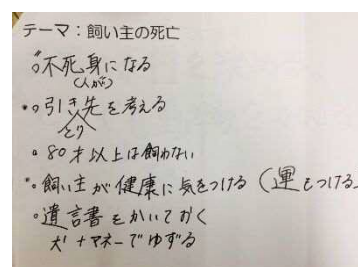 テーマ：飼い主の死亡
○不死身になる
(人が)
○引き先を考える
とり
○80才以上は飼わない
○飼い主が健康に気をつける(運もつける
○遺言書をかいておく
犬+マネーでゆずる